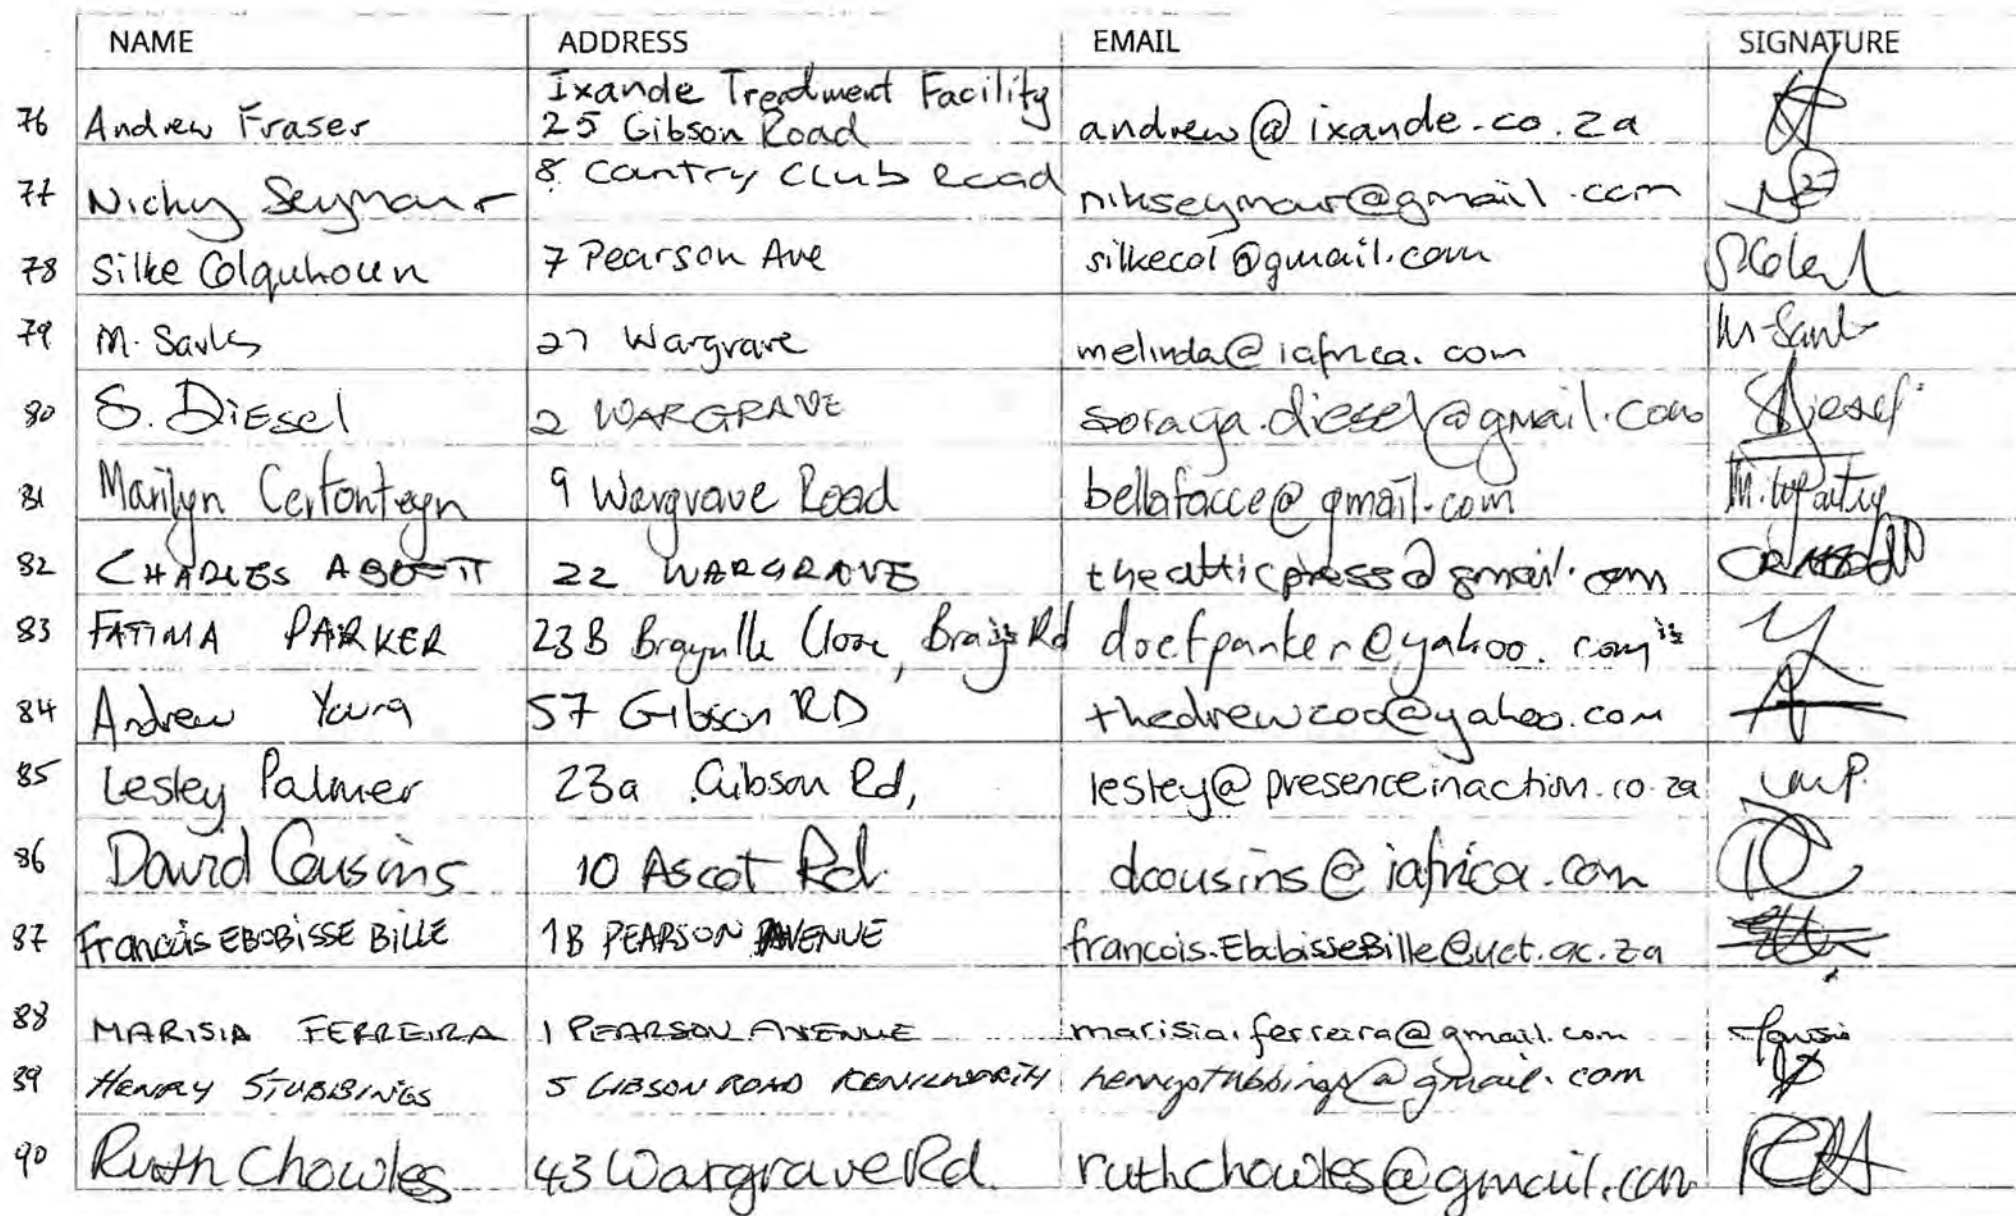 NAME ADDRESS EMAIL SIGNATURE
Ixande Treatment Facility
76 Andrew Fraser 25 Gibson Road andrew@ixande.co.za
77 Nichy Seymour 8 Country Club Road nikseymour@gmail.com
78 Silke Colquhoun 7 Pearson Ave silkecol@gmail.com
79 M. 27 Wargrave melinda@iafrica.com
80 S. DiEsel 2 WARGRAVE soraya.diesel@gmail.com SDiesel
81 Marilyn 9 Wargrave Road bellafacce@gmail.com
82 CHARLES ABBOTT 22 WARGRAVE theatticpress@gmail.com
83 FATIMA PARKER 23B Close, Rd docfparker@yahoo.com
84 Andrew Young 57 Gibson RD thedrewzoo@yahoo.com
85 Lesley Palmer 23a Gibson Rd, lesley@presenceinaction.co.za
86 David Cousins 10 Ascot Rd. dcousins@iafrica.com DC
87 Francois EBOBISSE BILLE 1B PEARSON AVENUE francois.EbobisseBille@uct.ac.za
88 MARISIA FERREIRA 1 PEARSON AVENUE marisia.ferreira@gmail.com
89 HENRY STUBBINGS 5 GIBSON ROAD KENILWORTH henrystubbings@gmail.com
90 Ruth Chowles 43 Wargrave Rd. ruthchowles@gmail.com